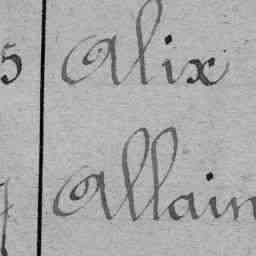 5 Alix
Allain